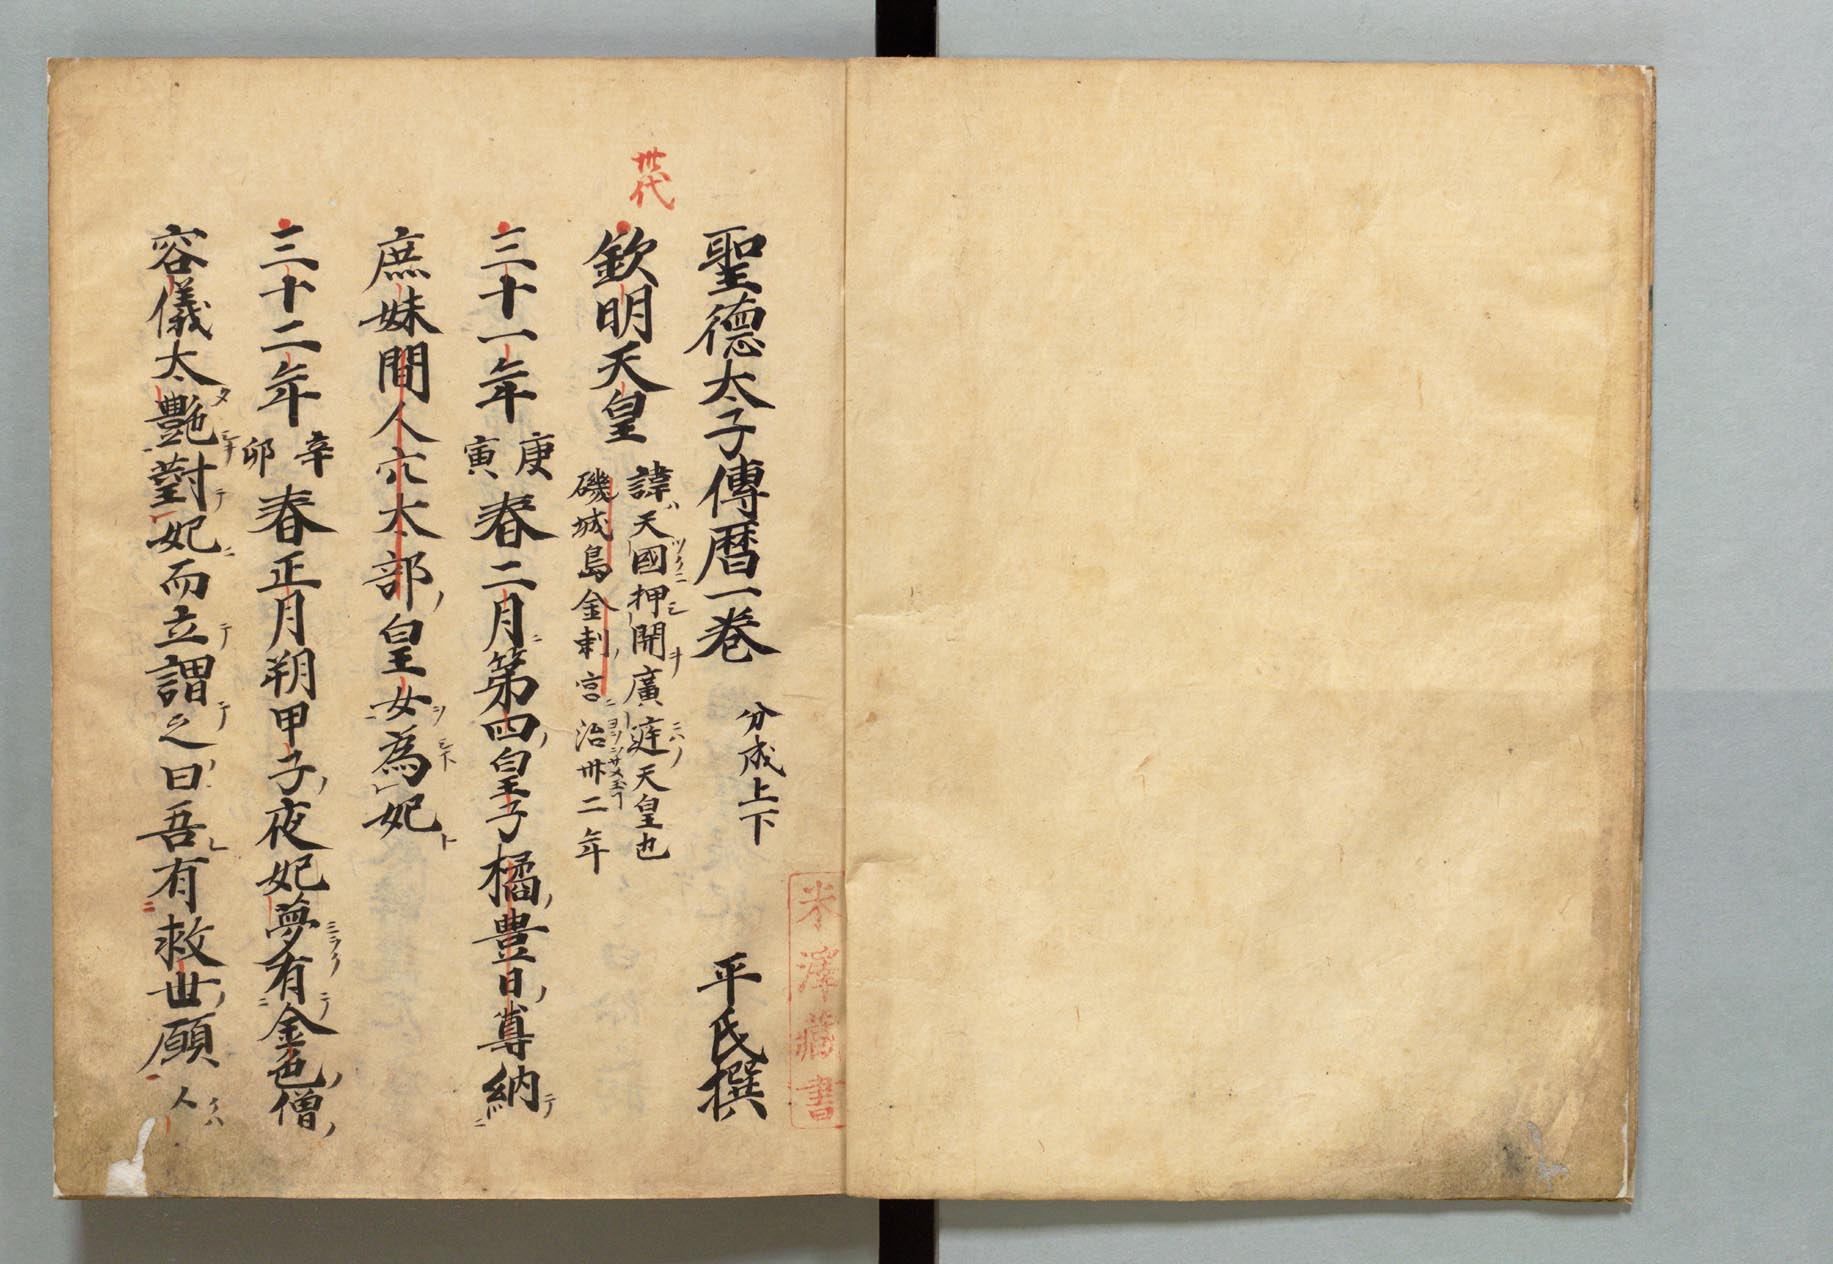 聖德太子傳曆一卷 分成上下 平氏撰
卅代
欽明天皇 諱天國押開廣庭天皇也
磯城島金刺宮治卅二年
三十一年 庚寅 春二月第四皇子橘豊日尊納
庶妹間人穴太部皇女為妃
三十二年 辛卯 春正月朔甲子夜妃夢有金色僧
容儀太艶對妃而立謂之曰吾有救世願人
米澤藏書